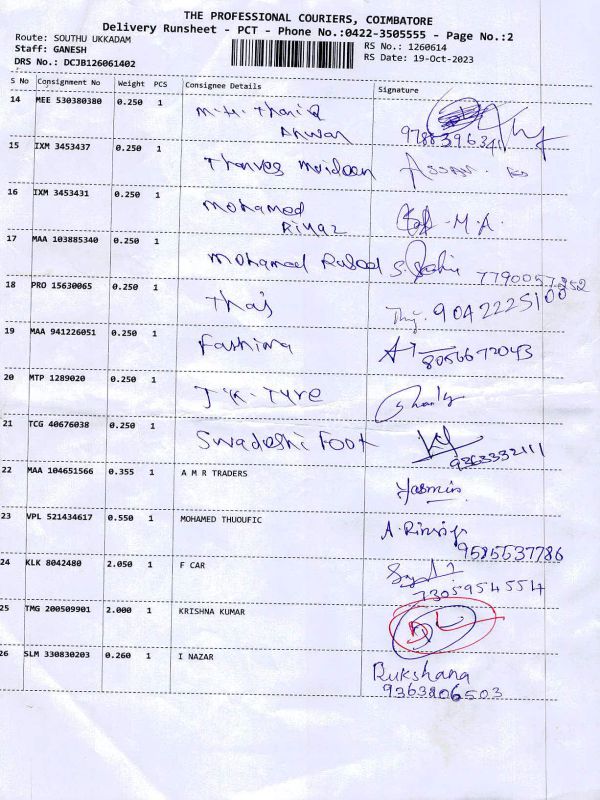 THE PROFESSIONAL COURIERS, COIMBATORE
Delivery Runsheet - PCT - Phone No.:0422-3505555 - Page No.:2
Route: SOUTHU UKKADAM
RS No.: 1260614
Staff: GANESH
RS Date: 19-Oct-2023
DRS No.: DCJB126061402
S No Consignment No Weight PCS Consignee Details Signature
14 MEE 530380380 0.250 1 M.H. Thariq
Anwar 9788396341
15 IXM 3453437 0.250 1
16 IXM 3453431 0.250 1 Mohamed
Riyaz M.A.
17 MAA 103885340 0.250 1 Mohamed Rasool S.
7790057252
18 PRO 15630065 0.250 1 Thaj 9042225100
19 MAA 941226051 0.250 1 Fathima 8056672043
20 MTP 1289020 0.250 1 J.K. Tyre
21 TCG 40676038 0.250 1 Swadeshi Foot
9363332111
22 MAA 104651566 0.355 1 A M R TRADERS Yasmin
23 VPL 521434617 0.550 1 MOHAMED THUOUFIC A.
9585537786
24 KLK 8042480 2.050 1 F CAR
7305954554
25 TMG 200509901 2.000 1 KRISHNA KUMAR
26 SLM 330830203 0.260 1 I NAZAR Rukshana
9363806503